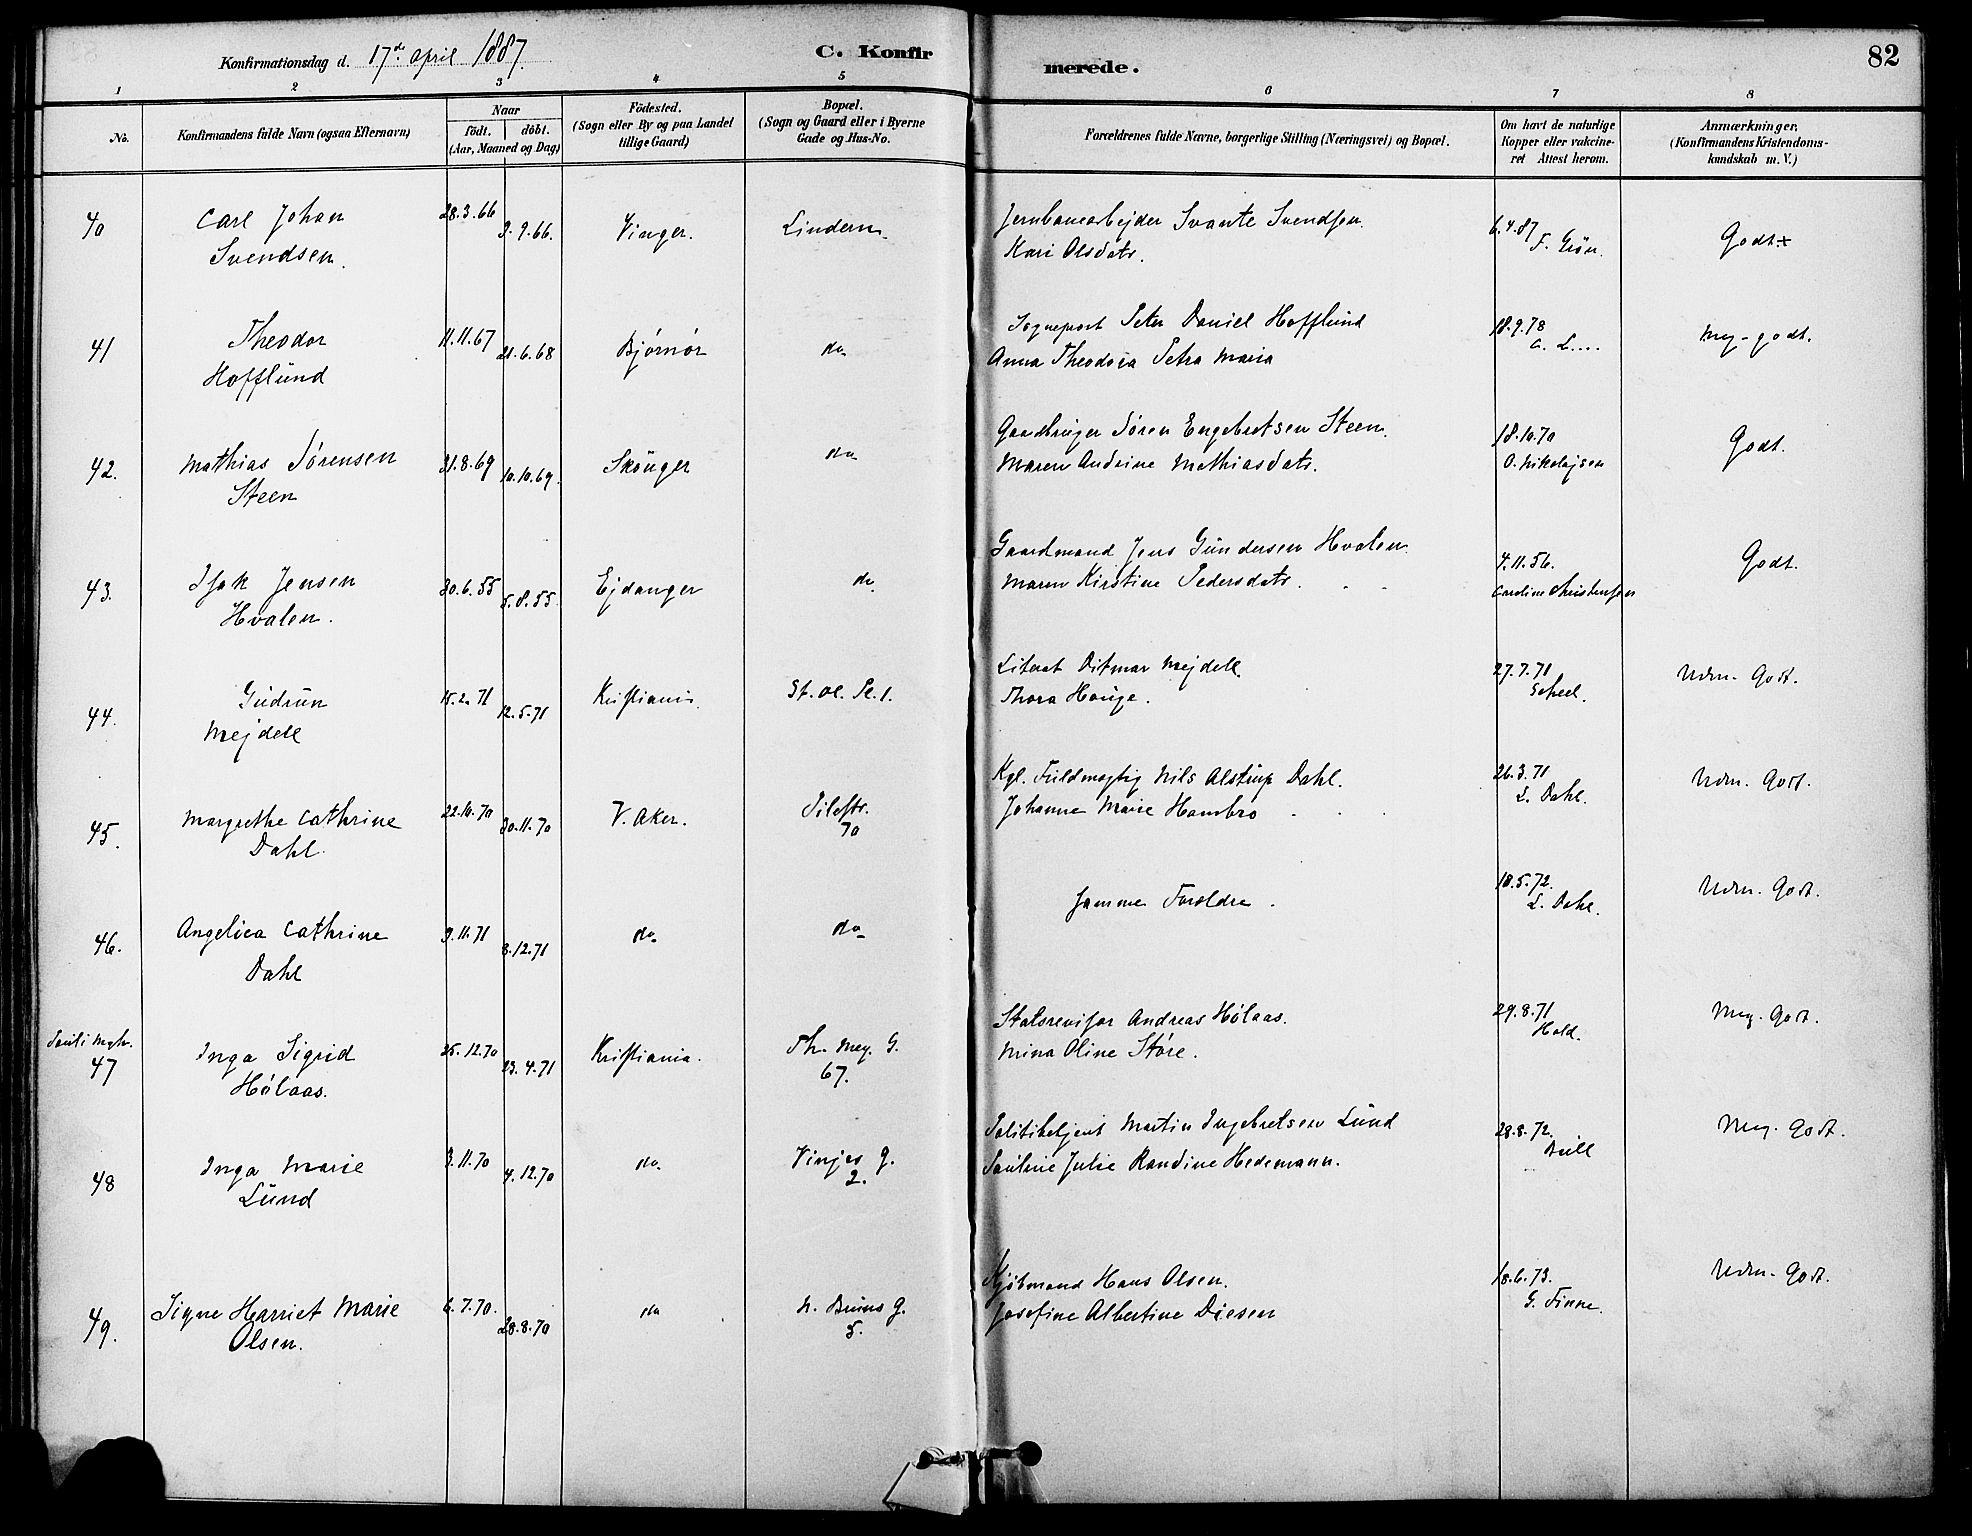 Konfirmationsdag d. 17de April 1887.
C. Konfirmerede.
82
1 2 3 4 5 6 7 8
No.
Konfirmandens fulde Navn (ogsaa Efternavn)
Naar
født. døbt.
(Aar, Maaned og Dag)
Födested.
(Sogn eller By og paa Landet
tillige Gaard)
Bopæl.
(Sogn og Gaard eller i Byerne
Gade og Hus-No.
Forældrenes fulde Navne, borgerlige Stilling (Næringsvei) og Bopæl.
Om havt de naturlige
Kopper eller vakcine-
ret Attest herom.
Anmærkninger.
(Konfirmandens Kristendoms-
kundskab m. V.)
40 Carl Johan 28.3.66 9.9.66. Vinger. Lindern Jernbanearbejder Svante Svendsen. 6.4.87 Godt.
Svendsen. Kari Olsdatr. F. Grön.
41 Theodor 11.11.67 21.6.68 Bjørnør do Sogneprest Peter Daniel Hofflund 18.9.78 Meg. godt.
Hofflund Anna Theodora Petra Maria C. L....
42. Mathias Sørensen 31.8.69 10.10.69. Skönger do Gaardbruger Søren Engebretsen Steen. 18.10.70 Godt.
Steen Maren Andrine Mathiasdatr. O. Nikolajsen
43. Isak Jensen 30.6.55 5.8.55 Ejdanger do Gaardmand Jens Gundersen Hvalen 4.11.56. Godt.
Hvalen. Maren Kirstine Pedersdatr. Caroline Christensen
44. Gudrun 15.2.71 12.5.71 Kristiania St. Ol. Pl. 1. Literat Ditmar Mejdell. 27.7.71 Udm. Godt.
Mejdell Thora Hauge. Scheel.
45. Margrethe Cathrine 22.10.70 30.11.70 V. Aker. Pilestr. 70 Kgl. Fuldmægtig Nils Alstrup Dahl. 26.3.71 Udm. Godt.
Dahl. Johanne Marie Hambro L. Dahl.
46. Angelica Cathrine 9.11.71 8.12.71 do do Samme Forældre. 18.5.72. Udm. Godt.
Dahl L. Dahl.
47 Inga Sigrid 25.12.70 23.4.71 Kristiania. Th. Mey. G. 67. Statsrevisor Andreas Hølaas. 29.8.71 Meg. Godt.
Hølaas. Mina Oline Støre. Hald.
48 Inga Marie 3.11.70 4.12.70 do Vinjes g. 2. Politibetjent Martin Ingebretsen Lund 28.8.72. Meg. Godt.
Lund Pauline Julie Randine Hedemann. Bull
49. Signe Harriet Marie 6.7.70. 28.8.70 do N. Bruns g. 5. Kjøbmand Hans Olsen. 18.6.73. Udm. Godt.
Olsen. Josefine Albertine Diesen G. Finne.